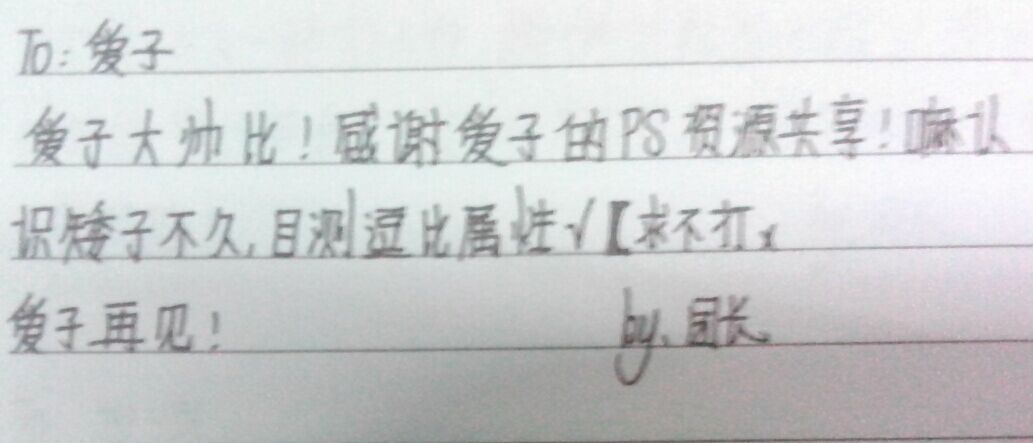 To: 爱子
爱子大帅比！感谢爱子的PS资源共享！嘛认
识矮子不久,目测逗比属性√【求不打x
爱子再见！
by. 团长